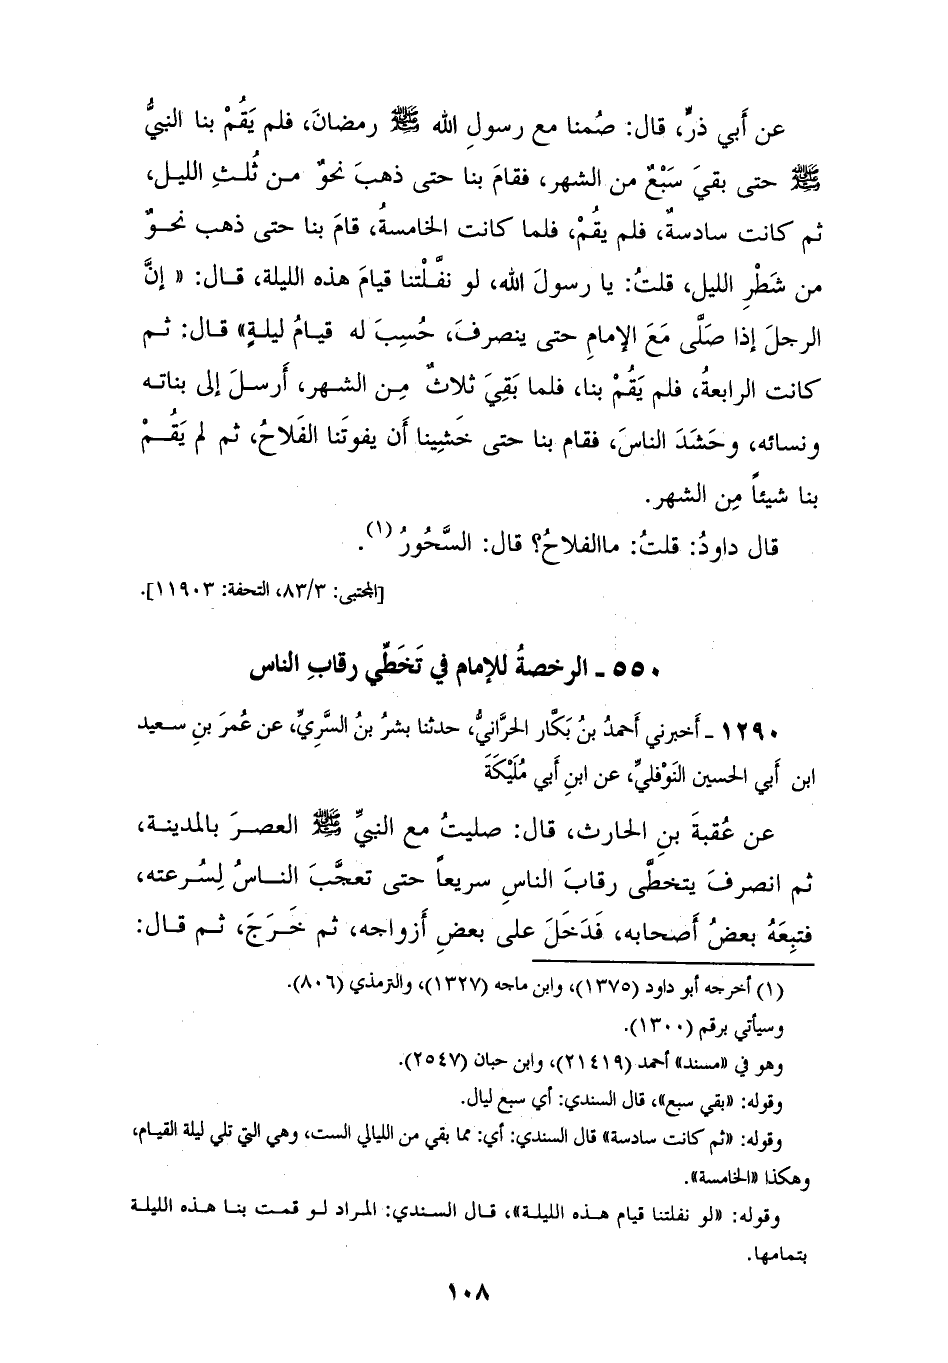 عن أَبي ذرٍّ، قال: صُمنا مع رسولِ الله ﷺ رمضانَ، فلم يَقُمْ بنا النبيُّ
ﷺ حتى بقيَ سَبْعٌ من الشهر، فقامَ بنا حتى ذهبَ نحوٌ من ثُلثِ الليل،
ثم كانت سادسةٌ، فلم يقُمْ، فلما كانت الخامسةُ، قامَ بنا حتى ذهب نحوٌ
من شَطْرِ الليل، قلتُ: يا رسولَ الله، لو نفَّلْتنا قيامَ هذه الليلة، قال: «إنَّ
الرجلَ إذا صَلَّى مَعَ الإمامِ حتى ينصرفَ، حُسِبَ له قيامُ ليلةٍ» قال: ثم
كانت الرابعةُ، فلم يَقُمْ بنا، فلما بَقِيَ ثلاثٌ مِن الشهر، أَرسلَ إلى بناته
ونسائه، وحَشَدَ الناسَ، فقام بنا حتى خَشِينا أَن يفوتَنا الفَلاحُ، ثم لم يَقُمْ
بنا شيئاً مِن الشهر.
قال داودُ: قلتُ: ماالفلاحُ؟ قال: السَّحُورُ (١).
[المجتبى: ٨٣/٣، التحفة: ١١٩٠٣].
٥٥٠ ـ الرخصةُ للإمام في تَخَطِّي رقابِ الناس
١٢٩٠ ـ أَخبرني أَحمدُ بنُ بَكَّار الحَرَّانيُّ، حدثنا بشرُ بنُ السَّرِيِّ، عن عُمرَ بنِ سعيد
ابن أَبي الحسين النَوْفليِّ، عن ابنِ أَبي مُلَيْكَةَ
عن عُقبةَ بنِ الحارث، قال: صليتُ مع النبيِّ ﷺ العصرَ بالمدينة،
ثم انصرفَ يتخطَّى رقابَ الناسِ سريعاً حتى تعجَّبَ الناسُ لِسُرعته،
فتبِعَهُ بعضُ أَصحابه، فَدَخَلَ على بعضِ أَزواجه، ثم خَرَجَ، ثم قال:
(١) أخرجه أبو داود (١٣٧٥)، وابن ماجه (١٣٢٧)، والترمذي (٨٠٦).
وسيأتي برقم (١٣٠٠).
وهو في «مسند» أحمد (٢١٤١٩)، وابن حبان (٢٥٤٧).
وقوله: «بقي سبع»، قال السندي: أي سبع ليال.
وقوله: «ثم كانت سادسة» قال السندي: أي: مما بقي من الليالي الست، وهي التي تلي ليلة القيام،
وهكذا «الخامسة».
وقوله: «لو نفلتنا قيام هذه الليلة»، قال السندي: المراد لو قمت بنا هذه الليلة
بتمامها.
١٠٨